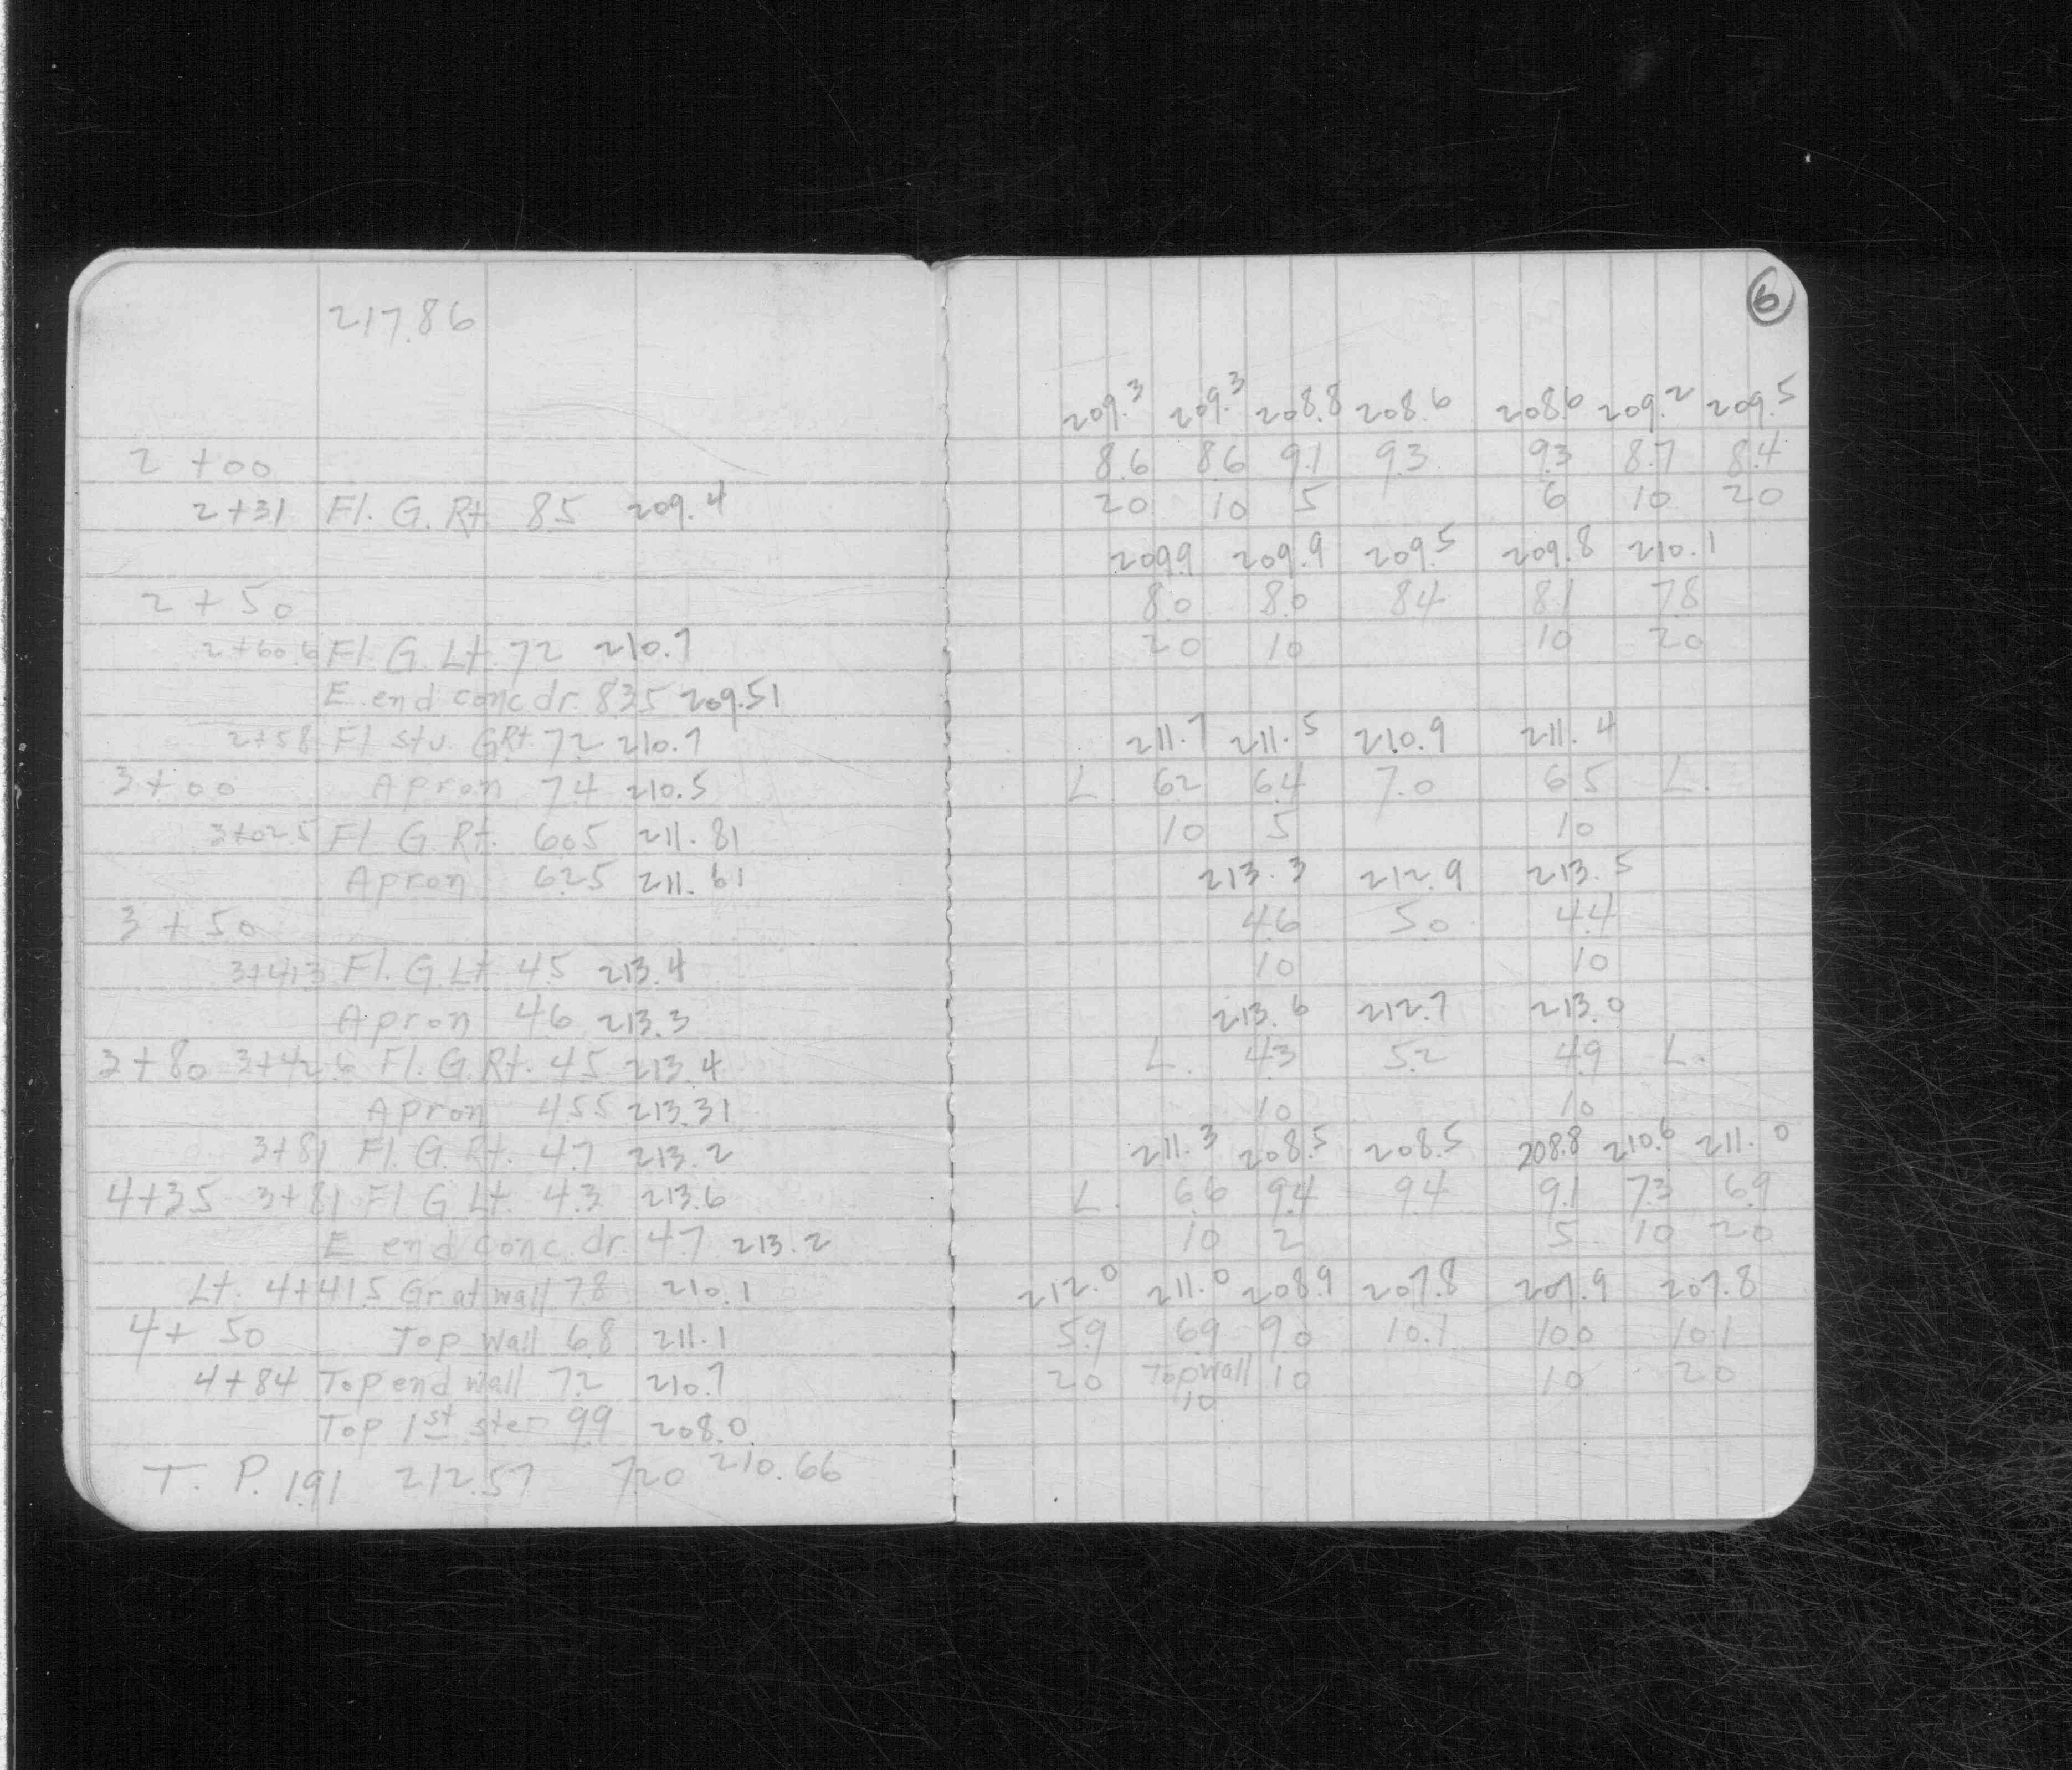 217.86
2 +00
2+31 Fl. G. Rt 85 209.4
2 + 50
2+60.6 Fl. G. Lt. 72 210.7
E. end conc dr. 835 209.51
2+58 Fl stu. G Rt. 72 210.7
3+00 Apron 74 210.5
3+02.5 Fl. G. Rt. 605 211.81
Apron 625 211.61
3 + 50
3+413 Fl. G. Lt 45 213.4
Apron 46 213.3
3+80 3+42.6 Fl. G. Rt. 45 213.4
Apron 455 213.31
3+81 Fl. G. Rt. 47 213.2
4+35 3+81 Fl. G Lt. 4.3 213.6
E end conc. dr. 47 213.2
Lt. 4+415 Gr at wall 78 210.1
4+ 50 Top wall 68 211.1
4+84 Top end wall 72 210.7
Top 1st step 99 208.0
T. P. 191 212.57 720 210.66
6
209.3 209.3 208.8 208.6 208.6 209.2 209.5
8.6 86 91 93 93 87 84
20 10 5 6 10 20
209.9 209.9 209.5 209.8 210.1
80 80 84 81 78
20 10 10 20
211.7 211.5 210.9 211.4
L 62 64 7.0 65 L.
10 5 10
213.3 212.9 213.5
46 50 44
10 10
213.6 212.7 213.0
L. 43 52 49 L.
10 10
211.3 208.5 208.5 208.8 210.6 211.0
L. 66 94 94 91 73 69
10 2 5 10 20
212.0 211.0 208.9 207.8 207.9 207.8
59 69 90 10.1 100 101
20 Top wall 10 10 20
10